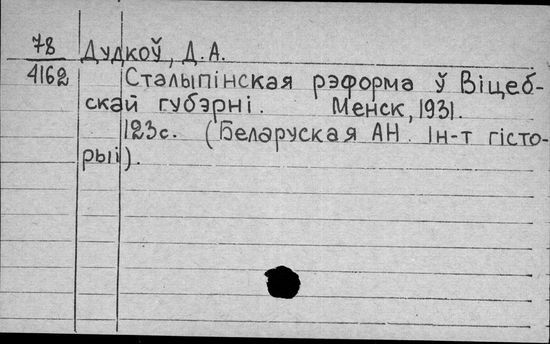 78 Дудкоў, Д.А.
4162 Сталыпінская рэформа ў Віцеб-
скай губэрні. Менск, 1931.
123с. (Беларуская АН. Ін-т гісто-
рыі).